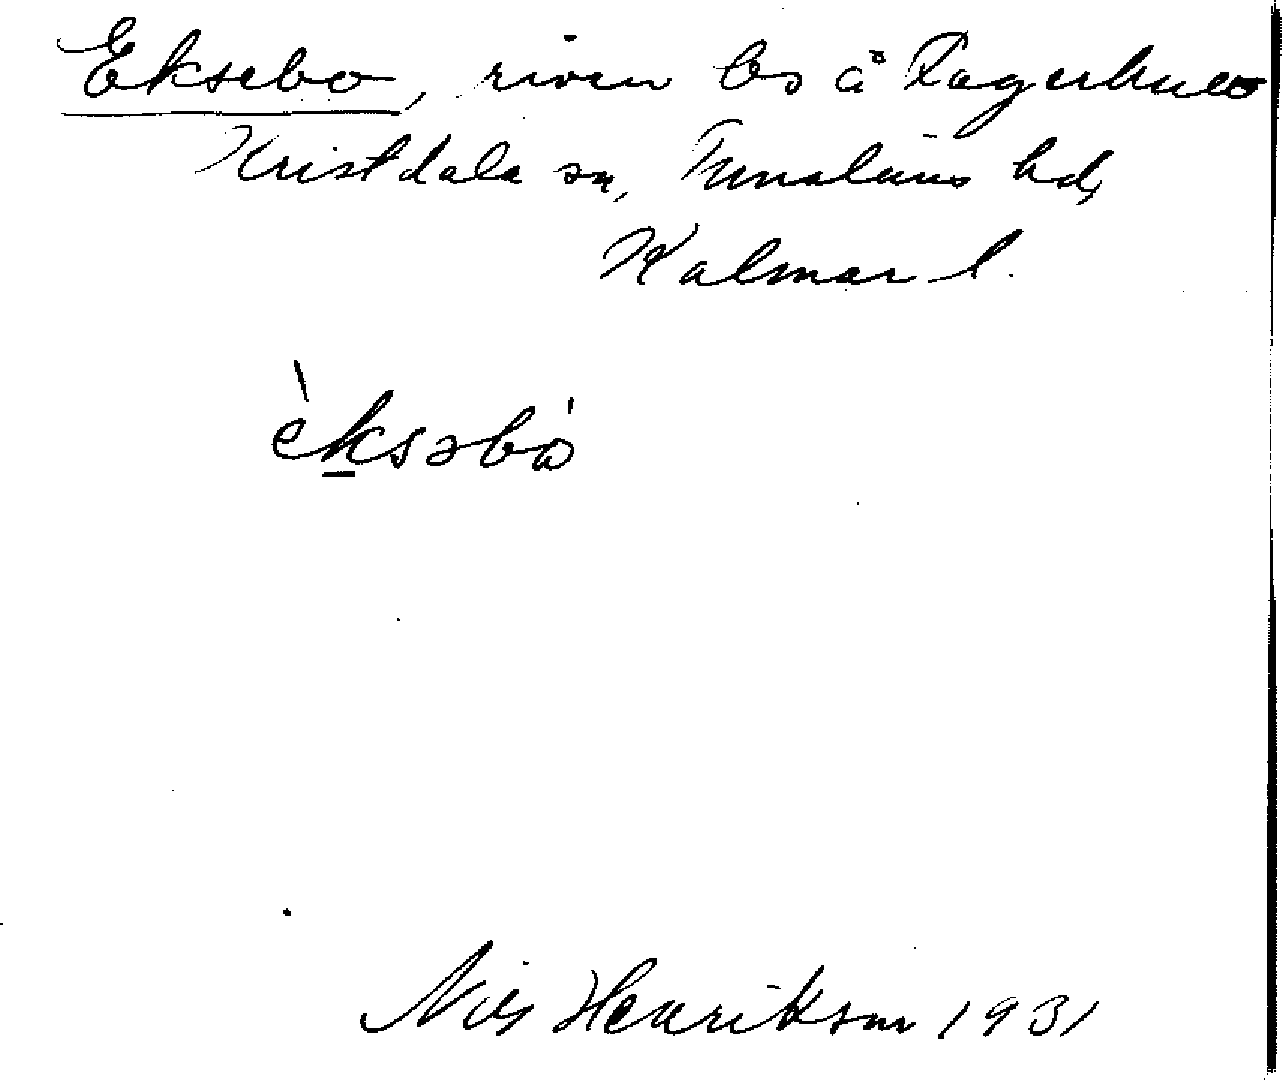 Eksebo, riven bs å Lagerhult
Kristdala sn, Tunaläns hd,
Kalmar l.
èksəbo'
Nils Henrikson 1931